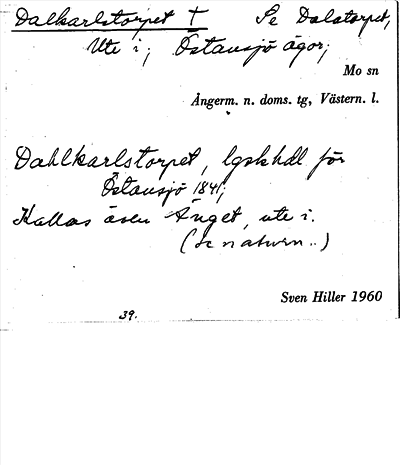 Dalkarlstorpet † Se Dalatorpet,
Ute i; Östansjö ägor;
Mo sn
Ångerm. n. doms. tg, Västern. l.
Dahlkarlstorpet, lgskhdl för
Östansjö 1841;
Kallas även Änget, ute i.
(se naturn..)
Sven Hiller 1960
39.